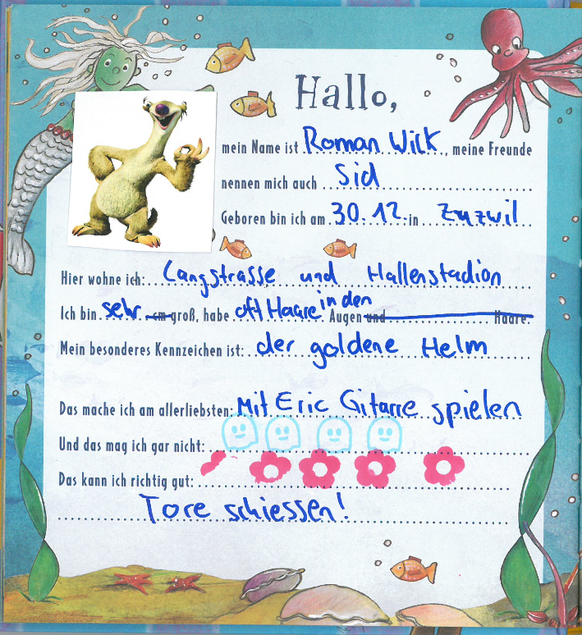 Hallo,
mein Name ist Roman Wick, meine Freunde
nennen mich auch Sid
Geboren bin ich am 30.12. in Zuzwil
Hier wohne ich: Langstrasse und Hallenstadion
Ich bin sehr cm groß, habe oft Haare in den Augen und Haare.
Mein besonderes Kennzeichen ist: der goldene Helm
Das mache ich am allerliebsten: Mit Eric Gitarre spielen
Und das mag ich gar nicht:
Das kann ich richtig gut:
Tore schiessen!